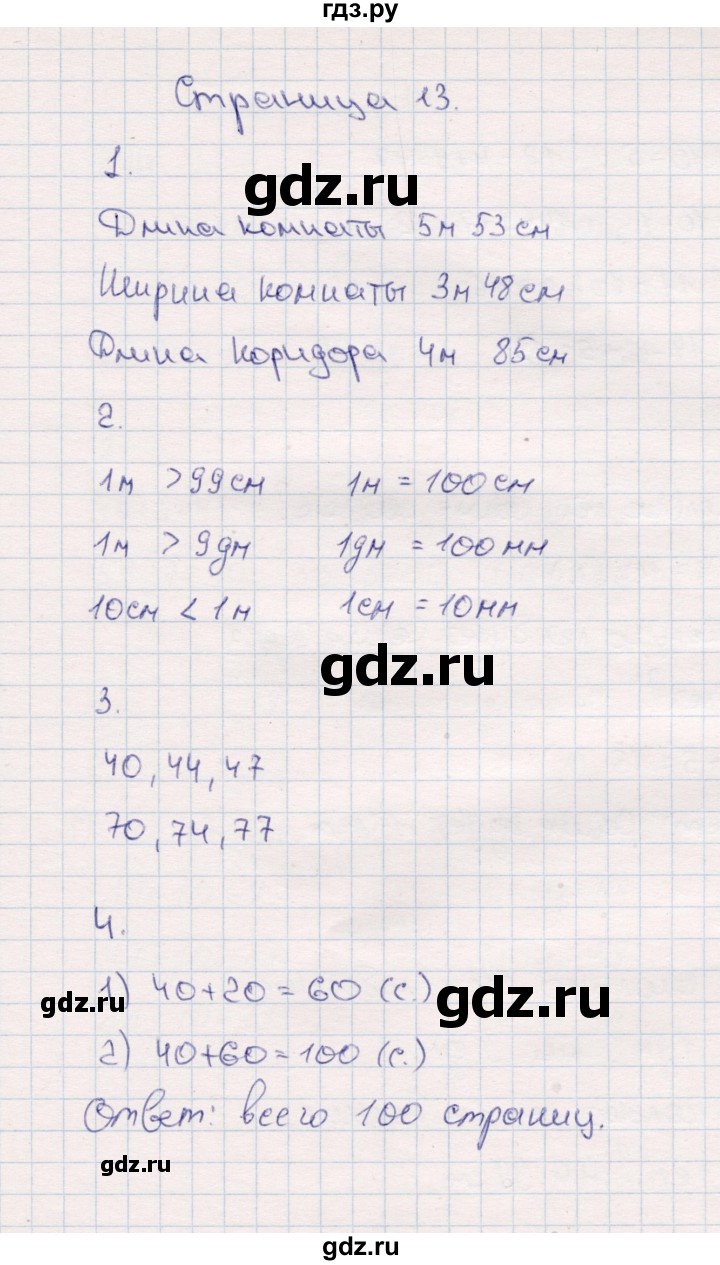 гдз.ру
Страница 13.
1.
gdz.ru
Длина комнаты 5м 53см
Ширина комнаты 3м 48см
Длина коридора 4м 85см
2.
1м > 99см 1м = 100см
1м > 9дм 1дм = 100мм
10см < 1м 1см = 10мм
gdz.ru
3.
40, 44, 47
70, 74, 77
4.
1) 40+20=60 (с.)
gdz.ru gdz.ru
2) 40+60=100 (с.)
Ответ: всего 100 страниц.
gdz.ru
gdz.ru